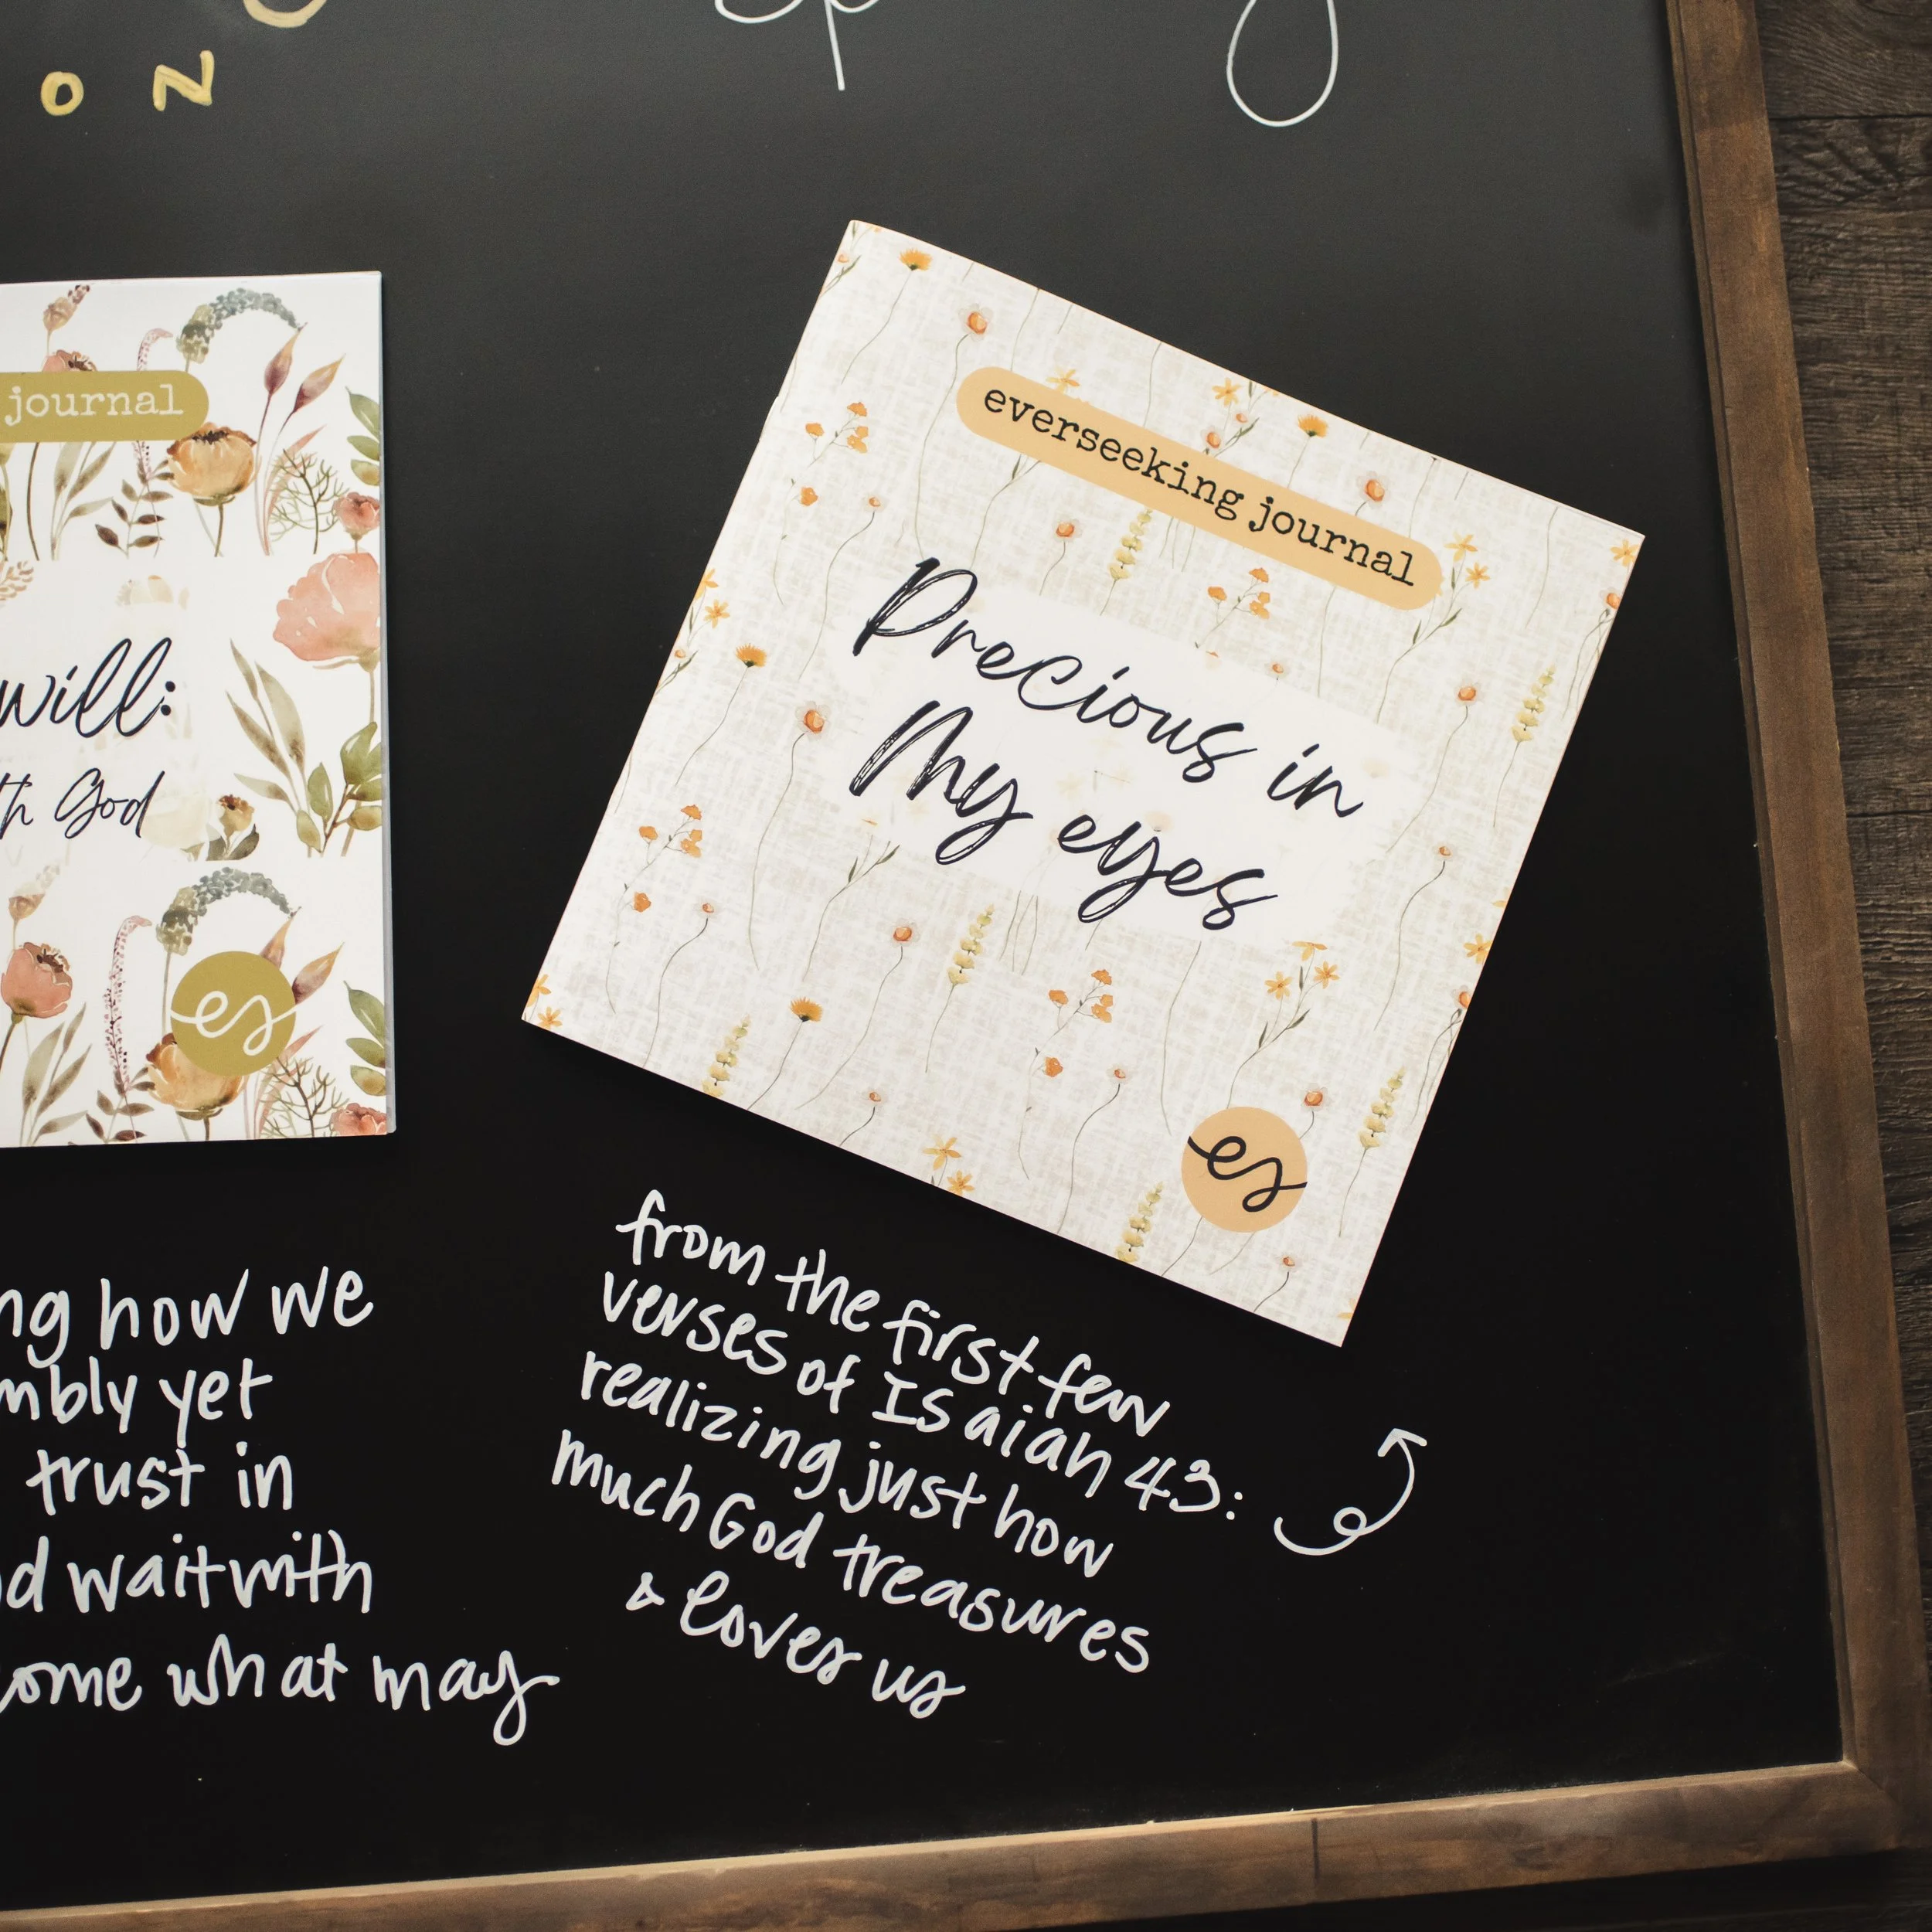 O N
journal
will:
God
es
everseeking journal
Precious in
My eyes
es
how we
yet
trust in
wait with
come what may
from the first few
verses of Isaiah 43:
realizing just how
much God treasures
& loves us